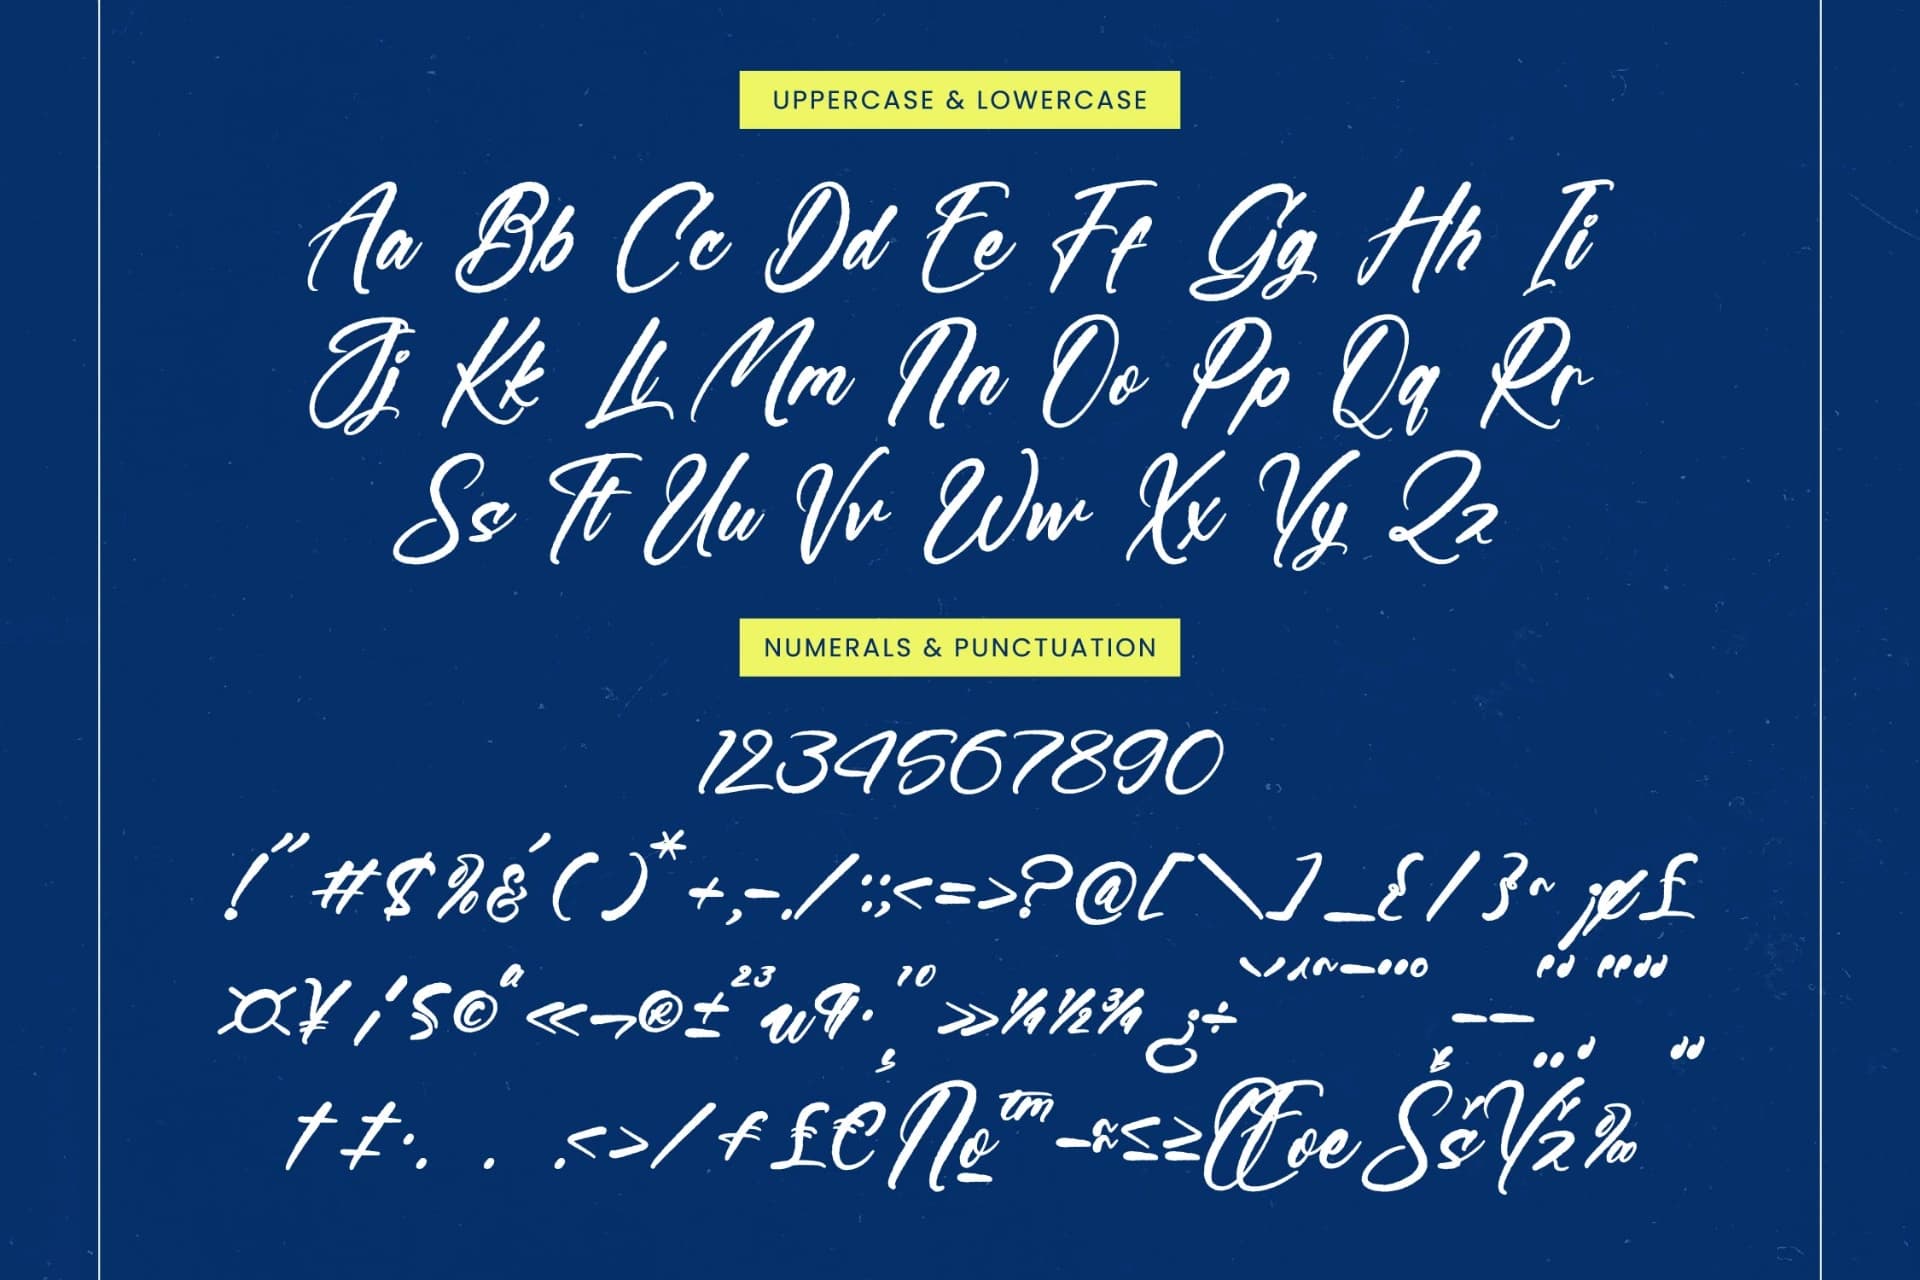 UPPERCASE & LOWERCASE
Aa Bb Cc Dd Ee Ff Gg Hh Ii
Jj Kk Ll Mm Nn Oo Pp Qq Rr
Ss Tt Uu Vv Ww Xx Yy Zz
NUMERALS & PUNCTUATION
1234567890
!"#$%&'()*+,-./:;<=>?@[\]_{/}~¡¢£
¤¥¦'§©ª«¬®±²³µ¶·¸¹⁰»¼½¾¿÷
†‡•. . .<>/₣£€№™−≈≤≥ŒœŠšŸž‰